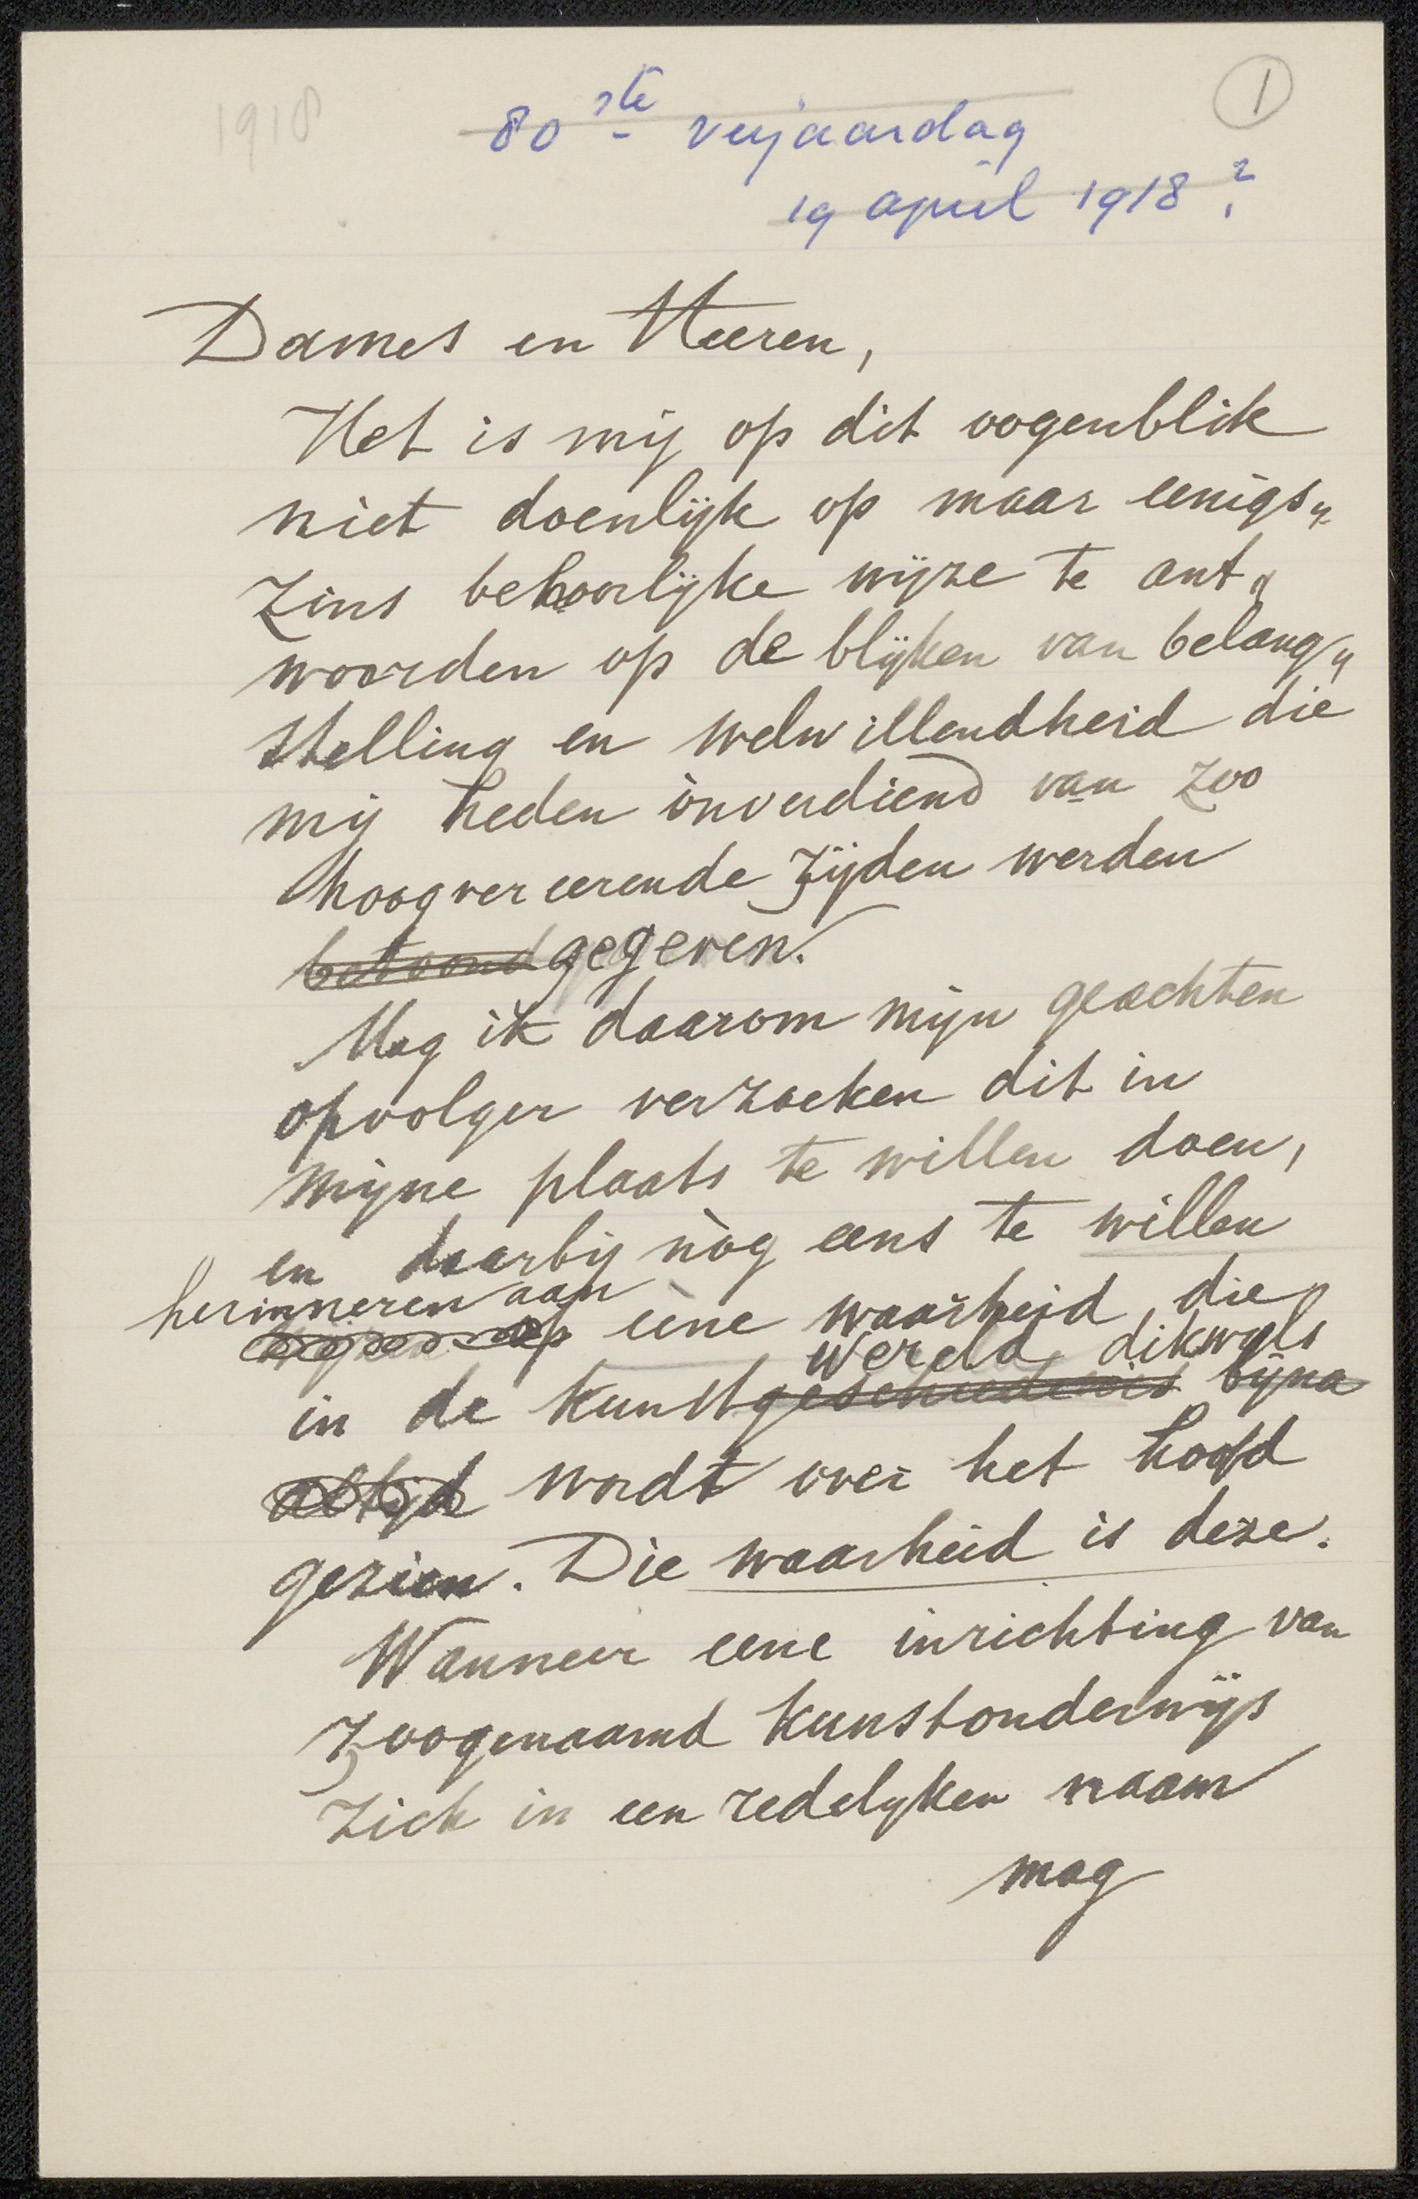 1918
1
80ste verjaardag
19 april 1918?
Dames en Heeren,
Het is mij op dit oogenblik
niet doenlijk op maar eenigs„
zins behoorlijke wijze te ant„
woorden op de blijken van belang„
stelling en welwillendheid die
mij heden onverdiend van zoo
hoogvereerende zijden werden
betoond gegeven.
Mag ik daarom mijn geachten
opvolger verzoeken dit in
mijne plaats te willen doen,
en daarbij nòg eens te willen
herinneren aan
op eene waarheid, die
wereld, dikwyls
in de kunstgeschiedenis bijna
altijd wordt over het hoofd
gezien. Die waarheid is deze.
Wanneer eene inrichting van
zoogenaamd kunstonderwijs
zich in een redelyken naam
mag